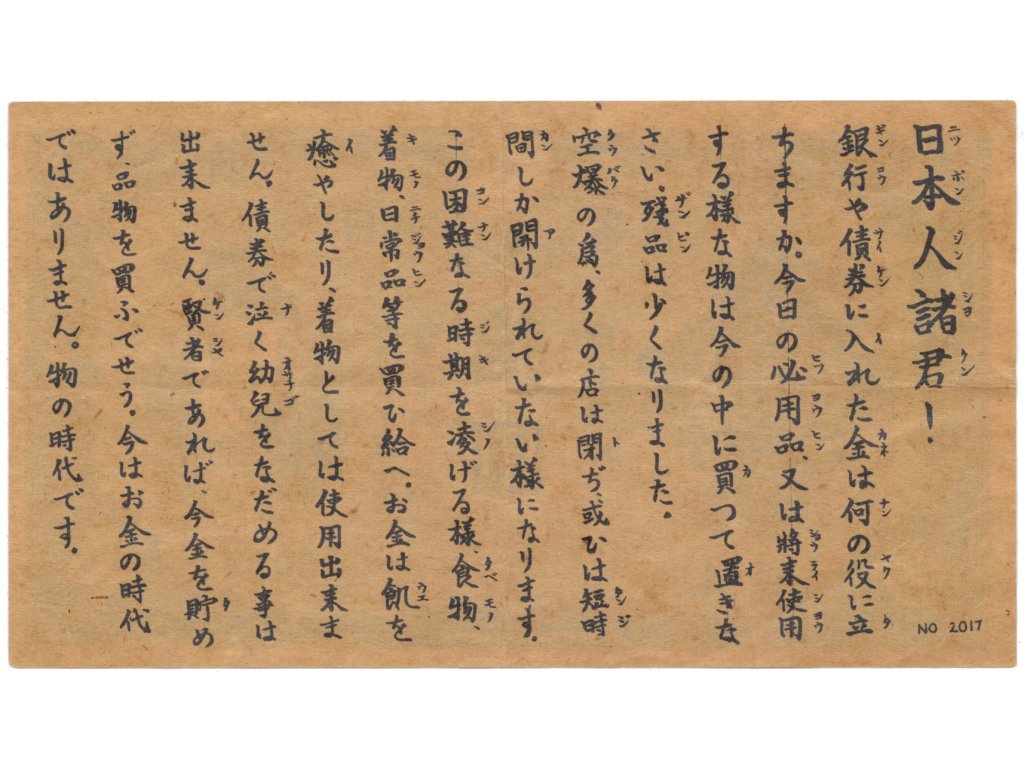 日本人諸君！
銀行や債券に入れた金は何の役に立
ちますか。今日の必用品、又は將来使用
する様な物は今の中に買つて置きな
さい。殘品は少くなりました。
空爆の爲、多くの店は閉ぢ、或ひは短時
間しか開けられていない様になります。
この困難なる時期を凌げる様、食物、
着物、日常品等を買ひ給へ。お金は飢を
癒やしたり、着物としては使用出来ま
せん。債券で泣く幼兒をなだめる事は
出来ません。賢者であれば、今金を貯め
ず、品物を買ふでせう。今はお金の時代
ではありません。物の時代です。
NO 2017